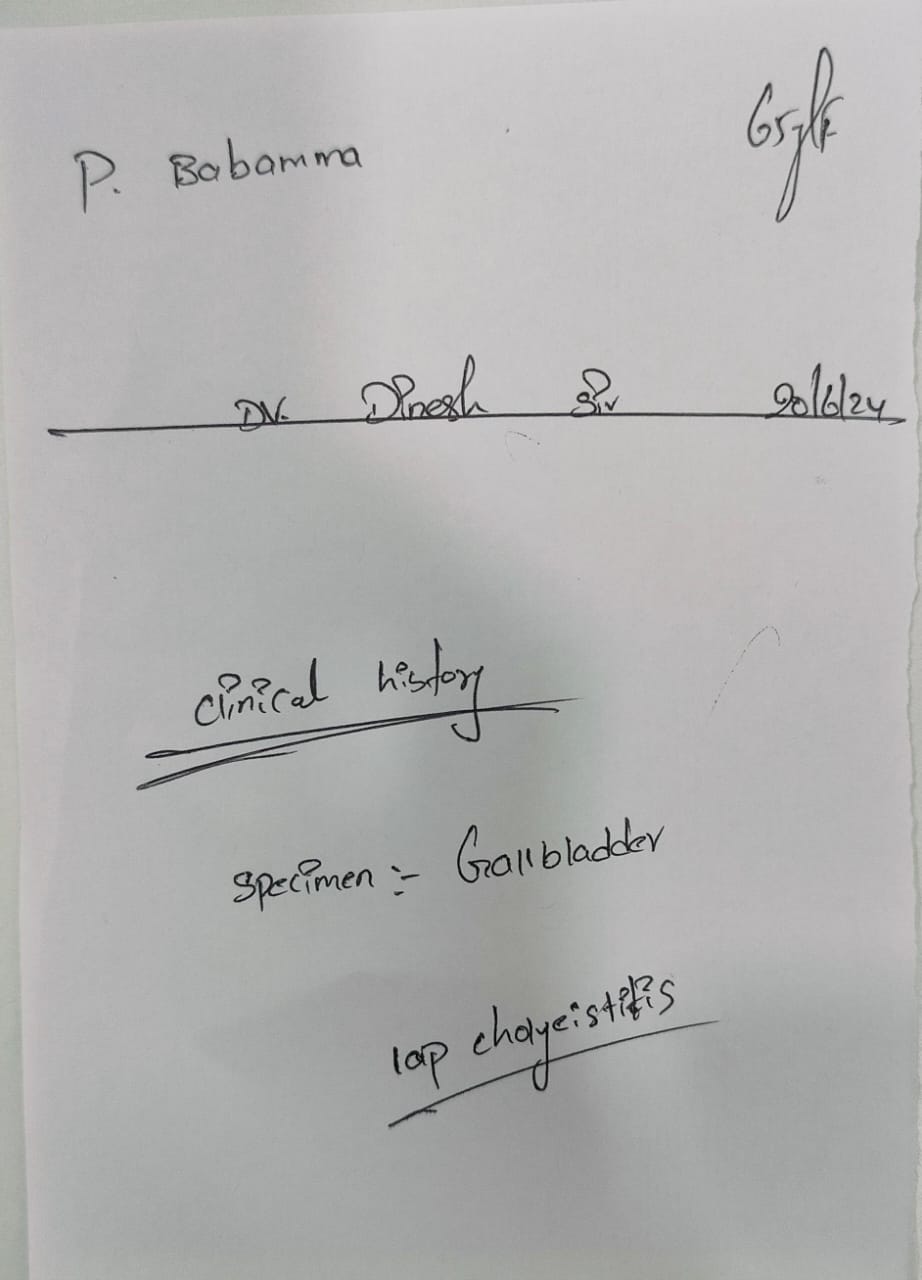 P. Babamma 65y/F
Dr. Dinesh Sir 20/6/24
clinical history
specimen :- Gallbladder
lap cholyeistitis